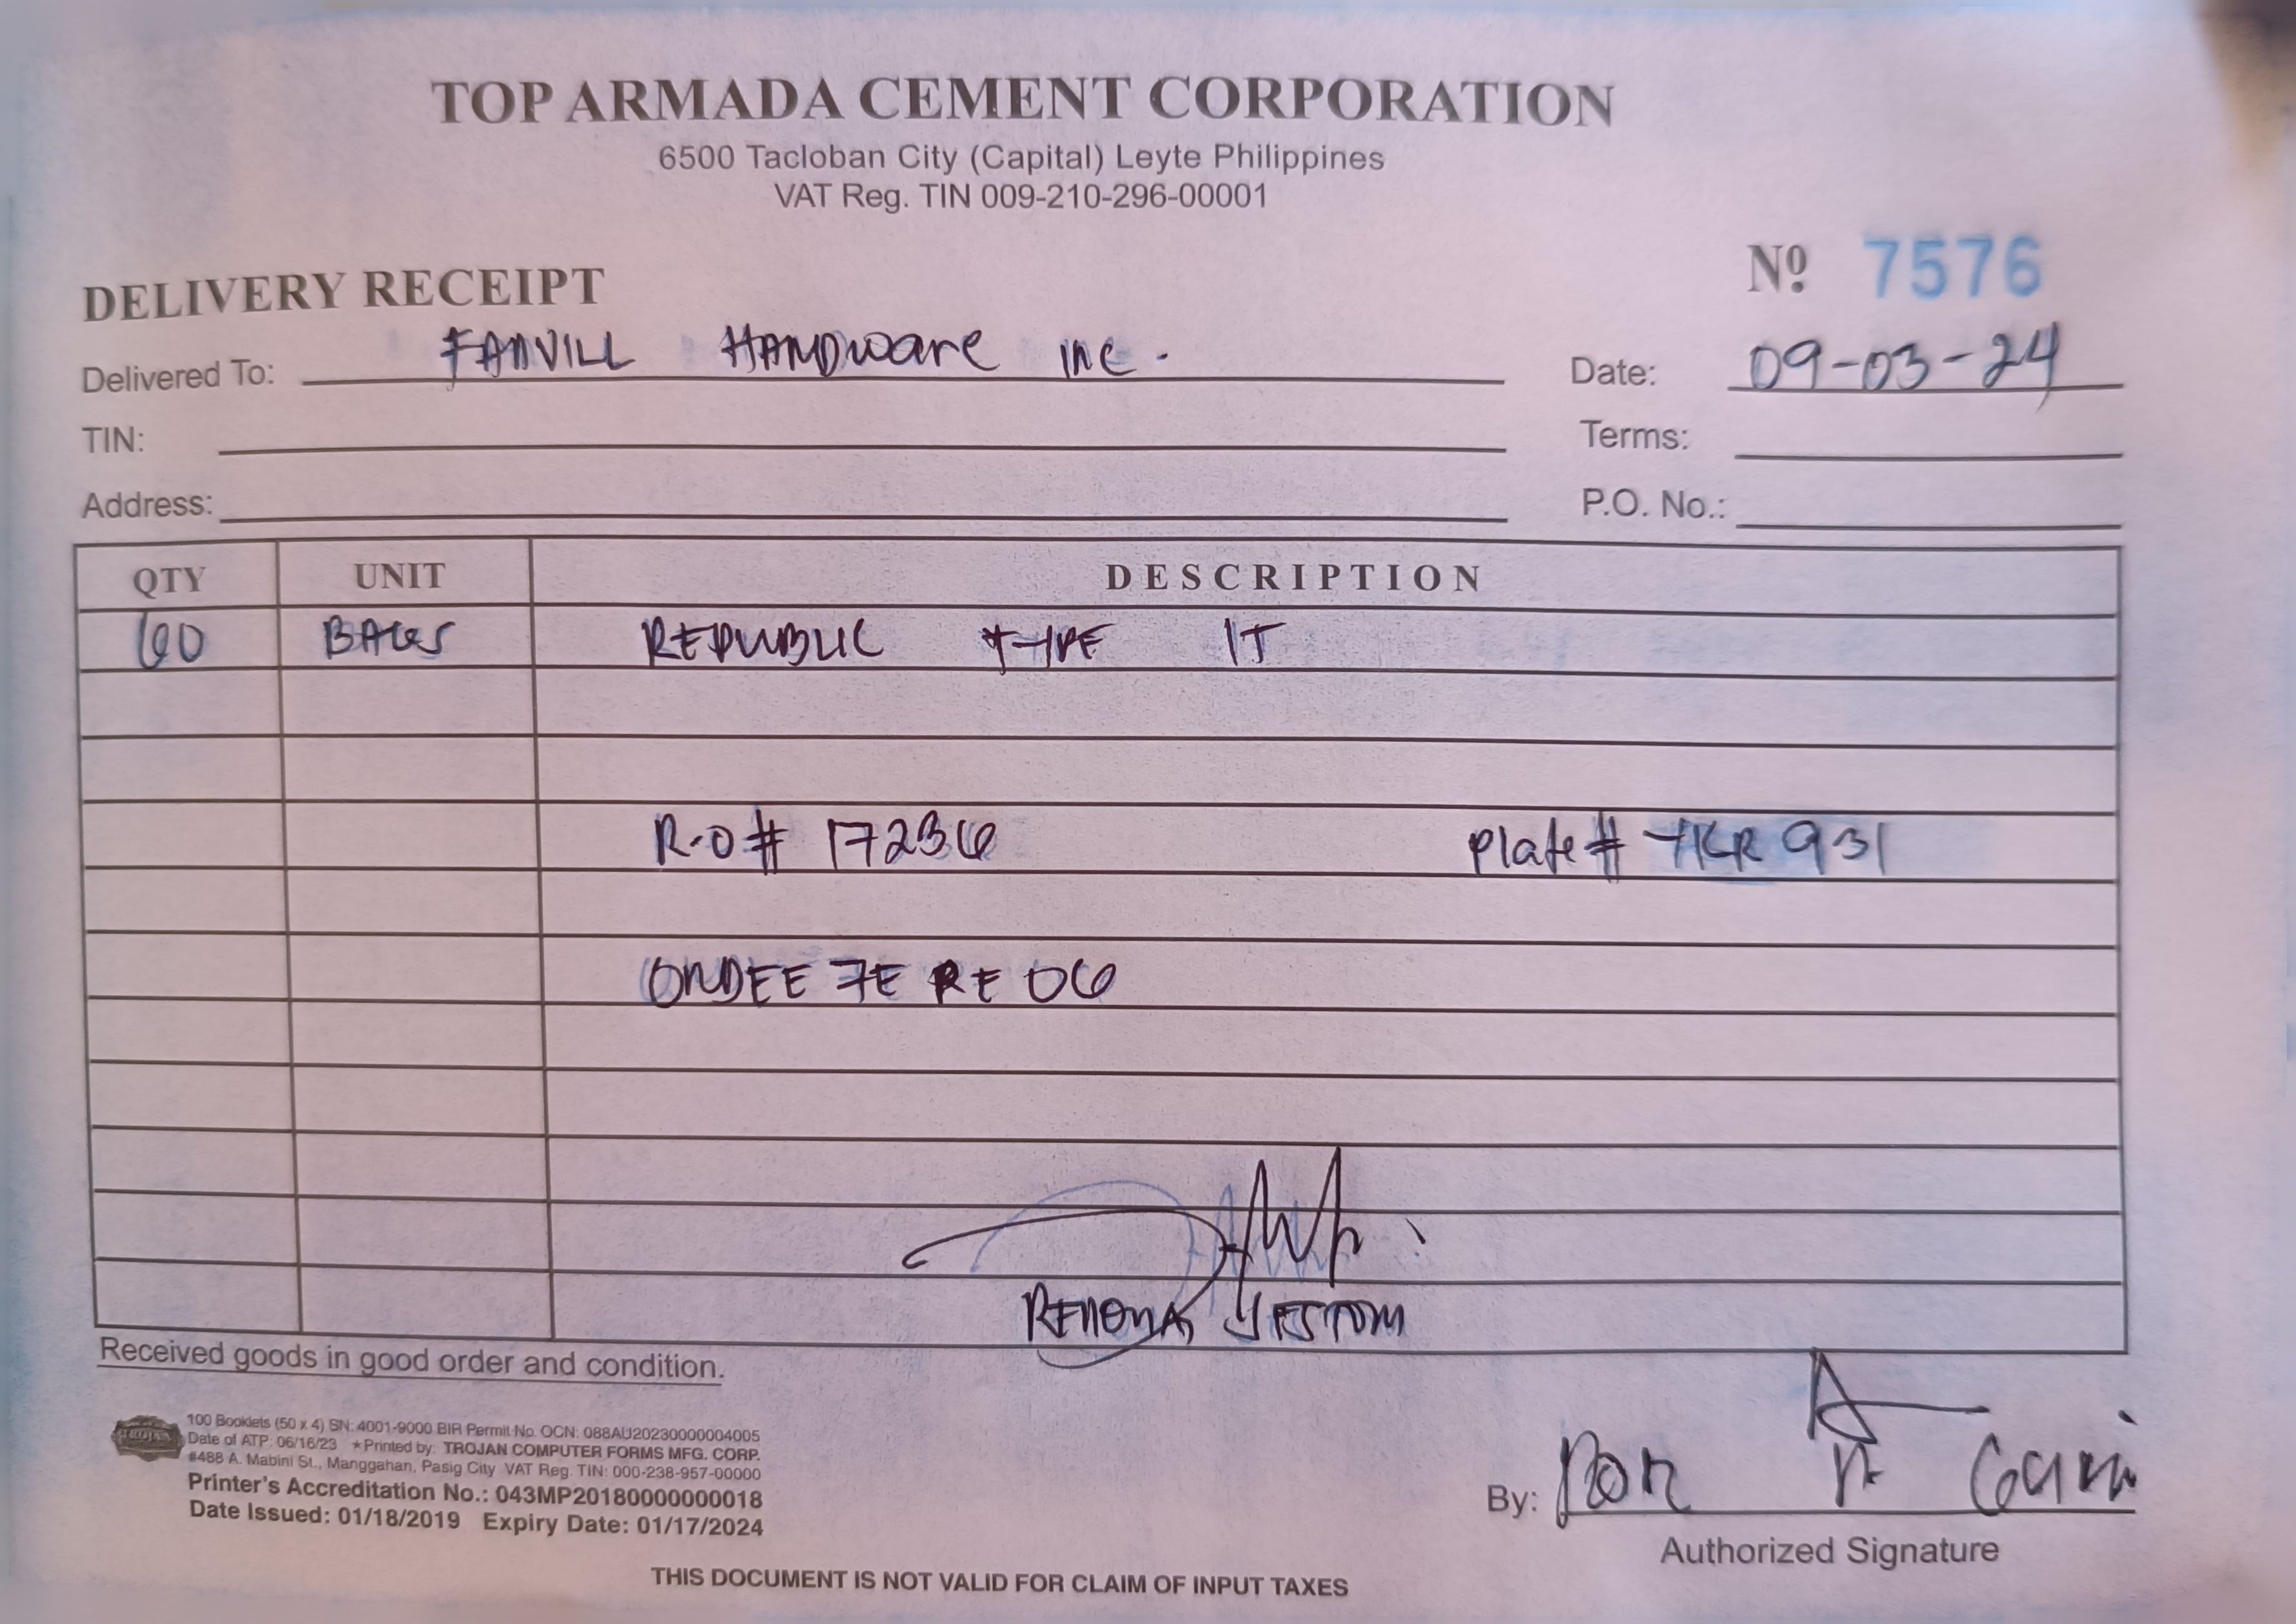 TOP ARMADA CEMENT CORPORATION
6500 Tacloban City (Capital) Leyte Philippines
VAT Reg. TIN 009-210-296-00001
DELIVERY RECEIPT
Nº 7576
Delivered To: FANVILL HANDWARE INC.
Date: 09-03-24
TIN:
Terms:
Address:
P.O. No.:
QTY UNIT DESCRIPTION
60 BAGS REPUBLIC TYPE 1T
R.O # 17236 Plate # YKR 931
ONDEE FE RE 06
Received goods in good order and condition.
100 Booklets (50 x 4) SN: 4001-9000 BIR Permit No. OCN: 088AU20230000004005
Date of ATP: 06/16/23 ★Printed by: TROJAN COMPUTER FORMS MFG. CORP.
#488 A. Mabini St., Manggahan, Pasig City VAT Reg. TIN: 000-238-957-00000
Printer's Accreditation No.: 043MP20180000000018
Date Issued: 01/18/2019 Expiry Date: 01/17/2024
By:
Authorized Signature
THIS DOCUMENT IS NOT VALID FOR CLAIM OF INPUT TAXES